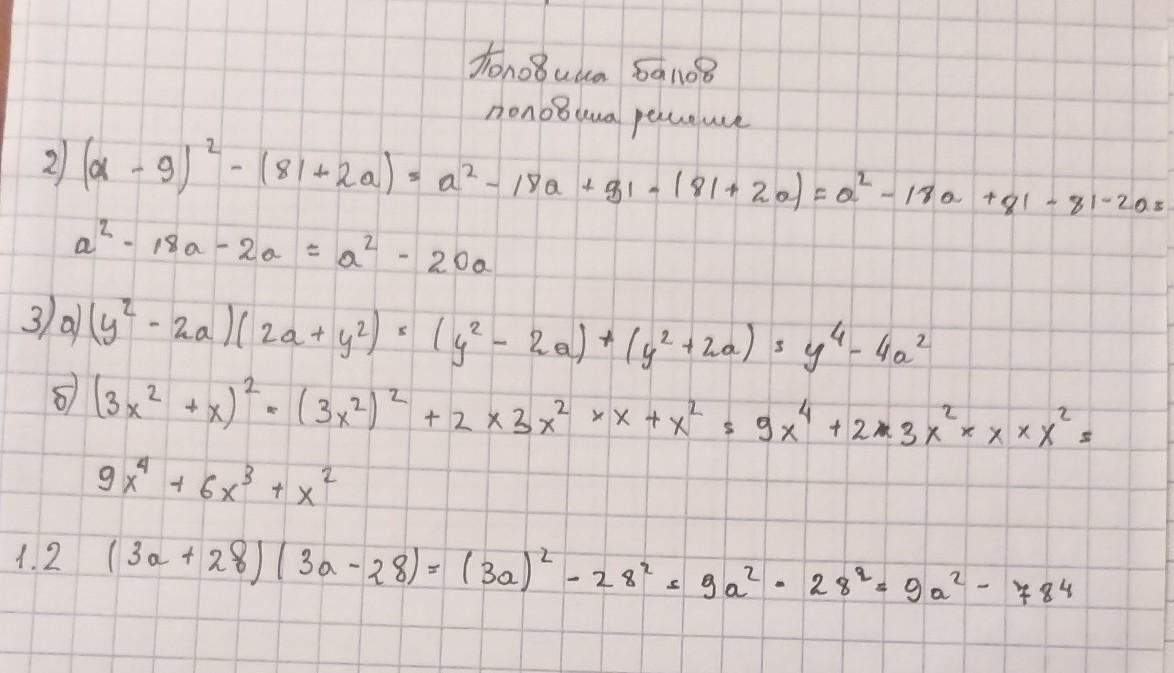 Половина балов
половина решение
2) (a - 9)² - (81 + 2a) = a² - 18a + 81 - (81 + 2a) = a² - 18a + 81 - 81 - 2a =
a² - 18a - 2a = a² - 20a
3) а) (y² - 2a)(2a + y²) = (y² - 2a) + (y² + 2a) = y⁴ - 4a²
б) (3x² + x)² = (3x²)² + 2 × 3x² × x + x² = 9x⁴ + 2 × 3x² × x × x² =
9x⁴ + 6x³ + x²
1.2 (3a + 28)(3a - 28) = (3a)² - 28² = 9a² - 28² = 9a² - 784